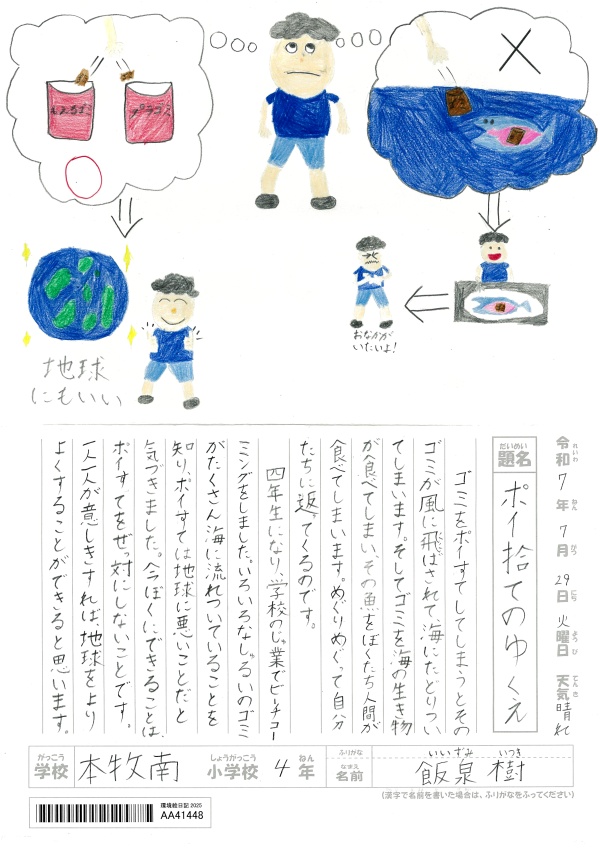 もえるゴミ
プラゴミ
地球
にもいい
おなかが
いたいよ!
令和7年7月29日火曜日 天気 晴れ
れいわ ねん がつ にち ようび てんき
だいめい
題名
ポイ捨てのゆくえ
ゴミをポイすてしてしまうとその
ゴミが風に飛ばされて海にたどりつい
てしまいます。そしてゴミを海の生き物
が食べてしまい、その魚をぼくたち人間が
食べてしまいます。めぐりめぐって自分
たちに返ってくるのです。
四年生になり、学校のじゅ業でビーチコー
ミングをしました。いろいろなしゅるいのゴミ
がたくさん海に流れついていることを
知り、ポイすては地球に悪いことだと
気づきました。今ぼくにできることは、
ポイすてをぜっ対にしないことです。
一人一人が意しきすれば、地球をより
よくすることができると思います。
がっこう しょうがっこう ねん
学校 本牧南 小学校 4年
ふりがな いいずみ いつき
なまえ
名前 飯泉 樹
(漢字で名前を書いた場合は、ふりがなをふってください)
環境絵日記 2025
AA41448